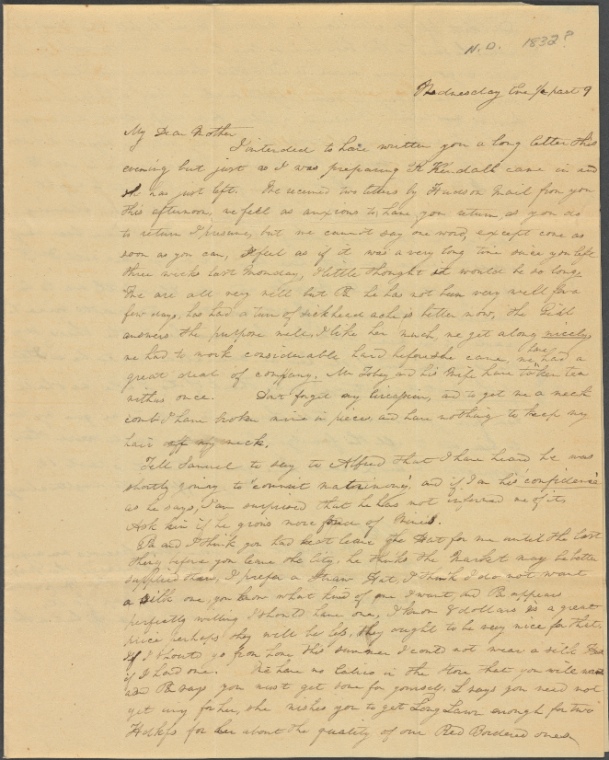 N.D. 1832?
Wednesday Eve 1/2 past 9
My Dear Mother
I intended to have written you a long letter this
evening but just as I was preparing Mr Kendall came in and
has just left. We received two letters by Hudson Mail from you
this afternoon, we felt as anxious to have you return, as you do
to return I presume, but we cannot say one word, except come as
soon as you can, I feel as if it was a very long time since you left
three weeks last Monday, I little thought it would be so long.
We are all very well but Pa he has not been very well for a
few days, has had a turn of sick head ache is better now, the Girl
answers the purpose well, I like her much, we get along nicely,
we had to work considerable hard before she came, we have had a
great deal of company. Mr Tobey and his Wife have taken tea
with us once. Dont forget my and to get me a neck
comb I have broken mine in pieces, and have nothing to keep my
hair off my neck.
Tell Samuel to say to Alfred that I have heard he was
shortly going to "commit matrimony," and if I am his confidence
as he says, I am surprised that he has not informed me of it.
Ask him if he grows more of
Pa and I think you had best leave the Hat for me until the last
thing before you leave the city, he thinks the Market may be better
supplied then, I prefer a Straw Hat, I think I do not want
a silk one, you know what kind of one I want, and Pa appears
perfectly willing I should have one, I know 8 dollars is a great
price perhaps they will be less, they ought to be very nice for that.
If I should go from home this summer I could not wear a silk
if I had one. We have no in the Store that you will
and Pa says you must get some for yourself. L says you need not
get any for her, she wishes you to get Long Lawn enough for two
Hdkfs for her about the quality of our Red Bordered ones